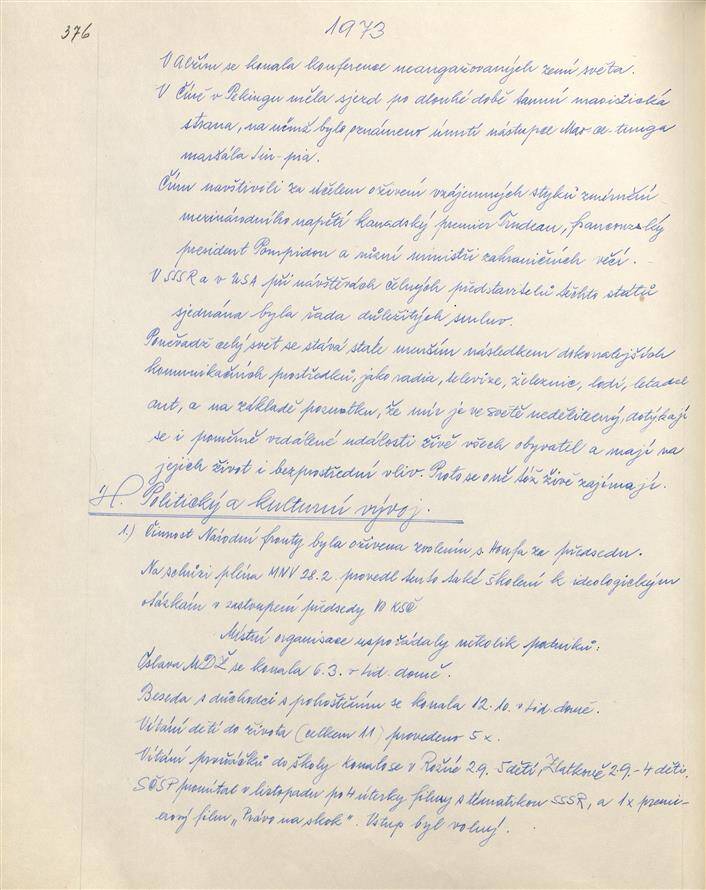 376
1973
V Alžíru se konala konference neangažovaných zemí světa.
V Číně v Pekingu měla sjezd po dlouhé době tamní maoistická
strana, na němž bylo oznámeno úmrtí nástupce Mao-ce-tunga
maršála Lin-pia.
Čínu navštívili za účelem oživení vzájemných styků zmírnění
mezinárodního napětí kanadský premier Trudeau, francouzský
president Pompidou a různí ministři zahraničních věcí.
V SSSR a v USA při návštěvách čelných představitelů těchto států
sjednána byla řada důležitých smluv.
Poněvadž celý svět se stává stále menším následkem dokonalejších
komunikačních prostředků, jako radia, televize, železnic, lodí, letadel
aut, a na základě poznatku, že mír je ve světě nedělitelný, dotýkají
se i poměrně vzdálené události živě všech obyvatel a mají na
jejich život i bezprostřední vliv. Proto se o ně též živě zajímají.
H. Politický a kulturní vývoj.
1.) Činnost Národní fronty byla oživena zvolením s. Honfa za předsedu.
Na schůzi pléna MNV 28.2. provedl tento také školení k ideologickým
otázkám v zastoupení předsedy VO KSČ
Místní organisace uspořádaly několik podniků:
Oslava MDŽ se konala 6.3. v Lid. domě.
Beseda s důchodci s pohoštěním se konala 12.10. v Lid. domě.
Vítání dětí do života (celkem 11) provedeno 5x.
Vítání prvňáčků do školy konalo se v Rožné 2.9. 5 dětí, Zlatkově 2.9. - 4 děti.
SČSP promítal v listopadu po 4 úterky filmy s tématikou SSSR, a 1x premi-
erový film „Právo na skok". Vstup byl volný.